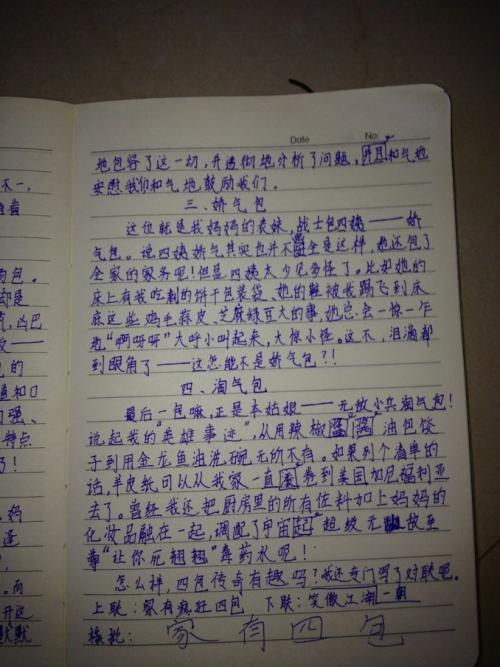 Date No:
地包容了这一切,并透彻地分析了问题,并且和气地
安慰我们和气地鼓励我们。
三、娇气包
这位就是我妈妈的表妹,战士包四姨——娇
气包。说四姨娇气其实也并不全是这样,她还包了
全家的家务呢!但是四姨太少见多怪了。比如她的
床上有我吃剩的饼干包装袋、她的鞋被我踢飞到床
底这些鸡毛蒜皮、芝麻绿豆大的事,她总会一惊一乍
地“啊呀呀”大呼小叫起来,大惊小怪。这不,泪滴都
到眼角了——这怎能不是娇气包?!
四、淘气包
最后一包嘛,正是本姑娘——无敌小兵淘气包!
说起我的“英雄事迹”,从用辣椒酱油包饺
子到用金龙鱼油洗碗无所不有。如果列个清单的
话,羊皮纸可以从我家一直卷到美国加尼福利亚
去了。曾经我还把厨房里的所有佐料加上妈妈的
化妆品融在一起,调配了宇宙超级无敌至
尊“让你死翘翘”毒药水呢!
怎么样,四包传奇有趣吗?我还专门写了对联呢。
上联:家有疯狂四包 下联:笑傲江湖一朝
横批:家有四包
不一,
包。
却是
凶巴
的
和口
强、
特点
了!
妈
逢
而
开这
默默